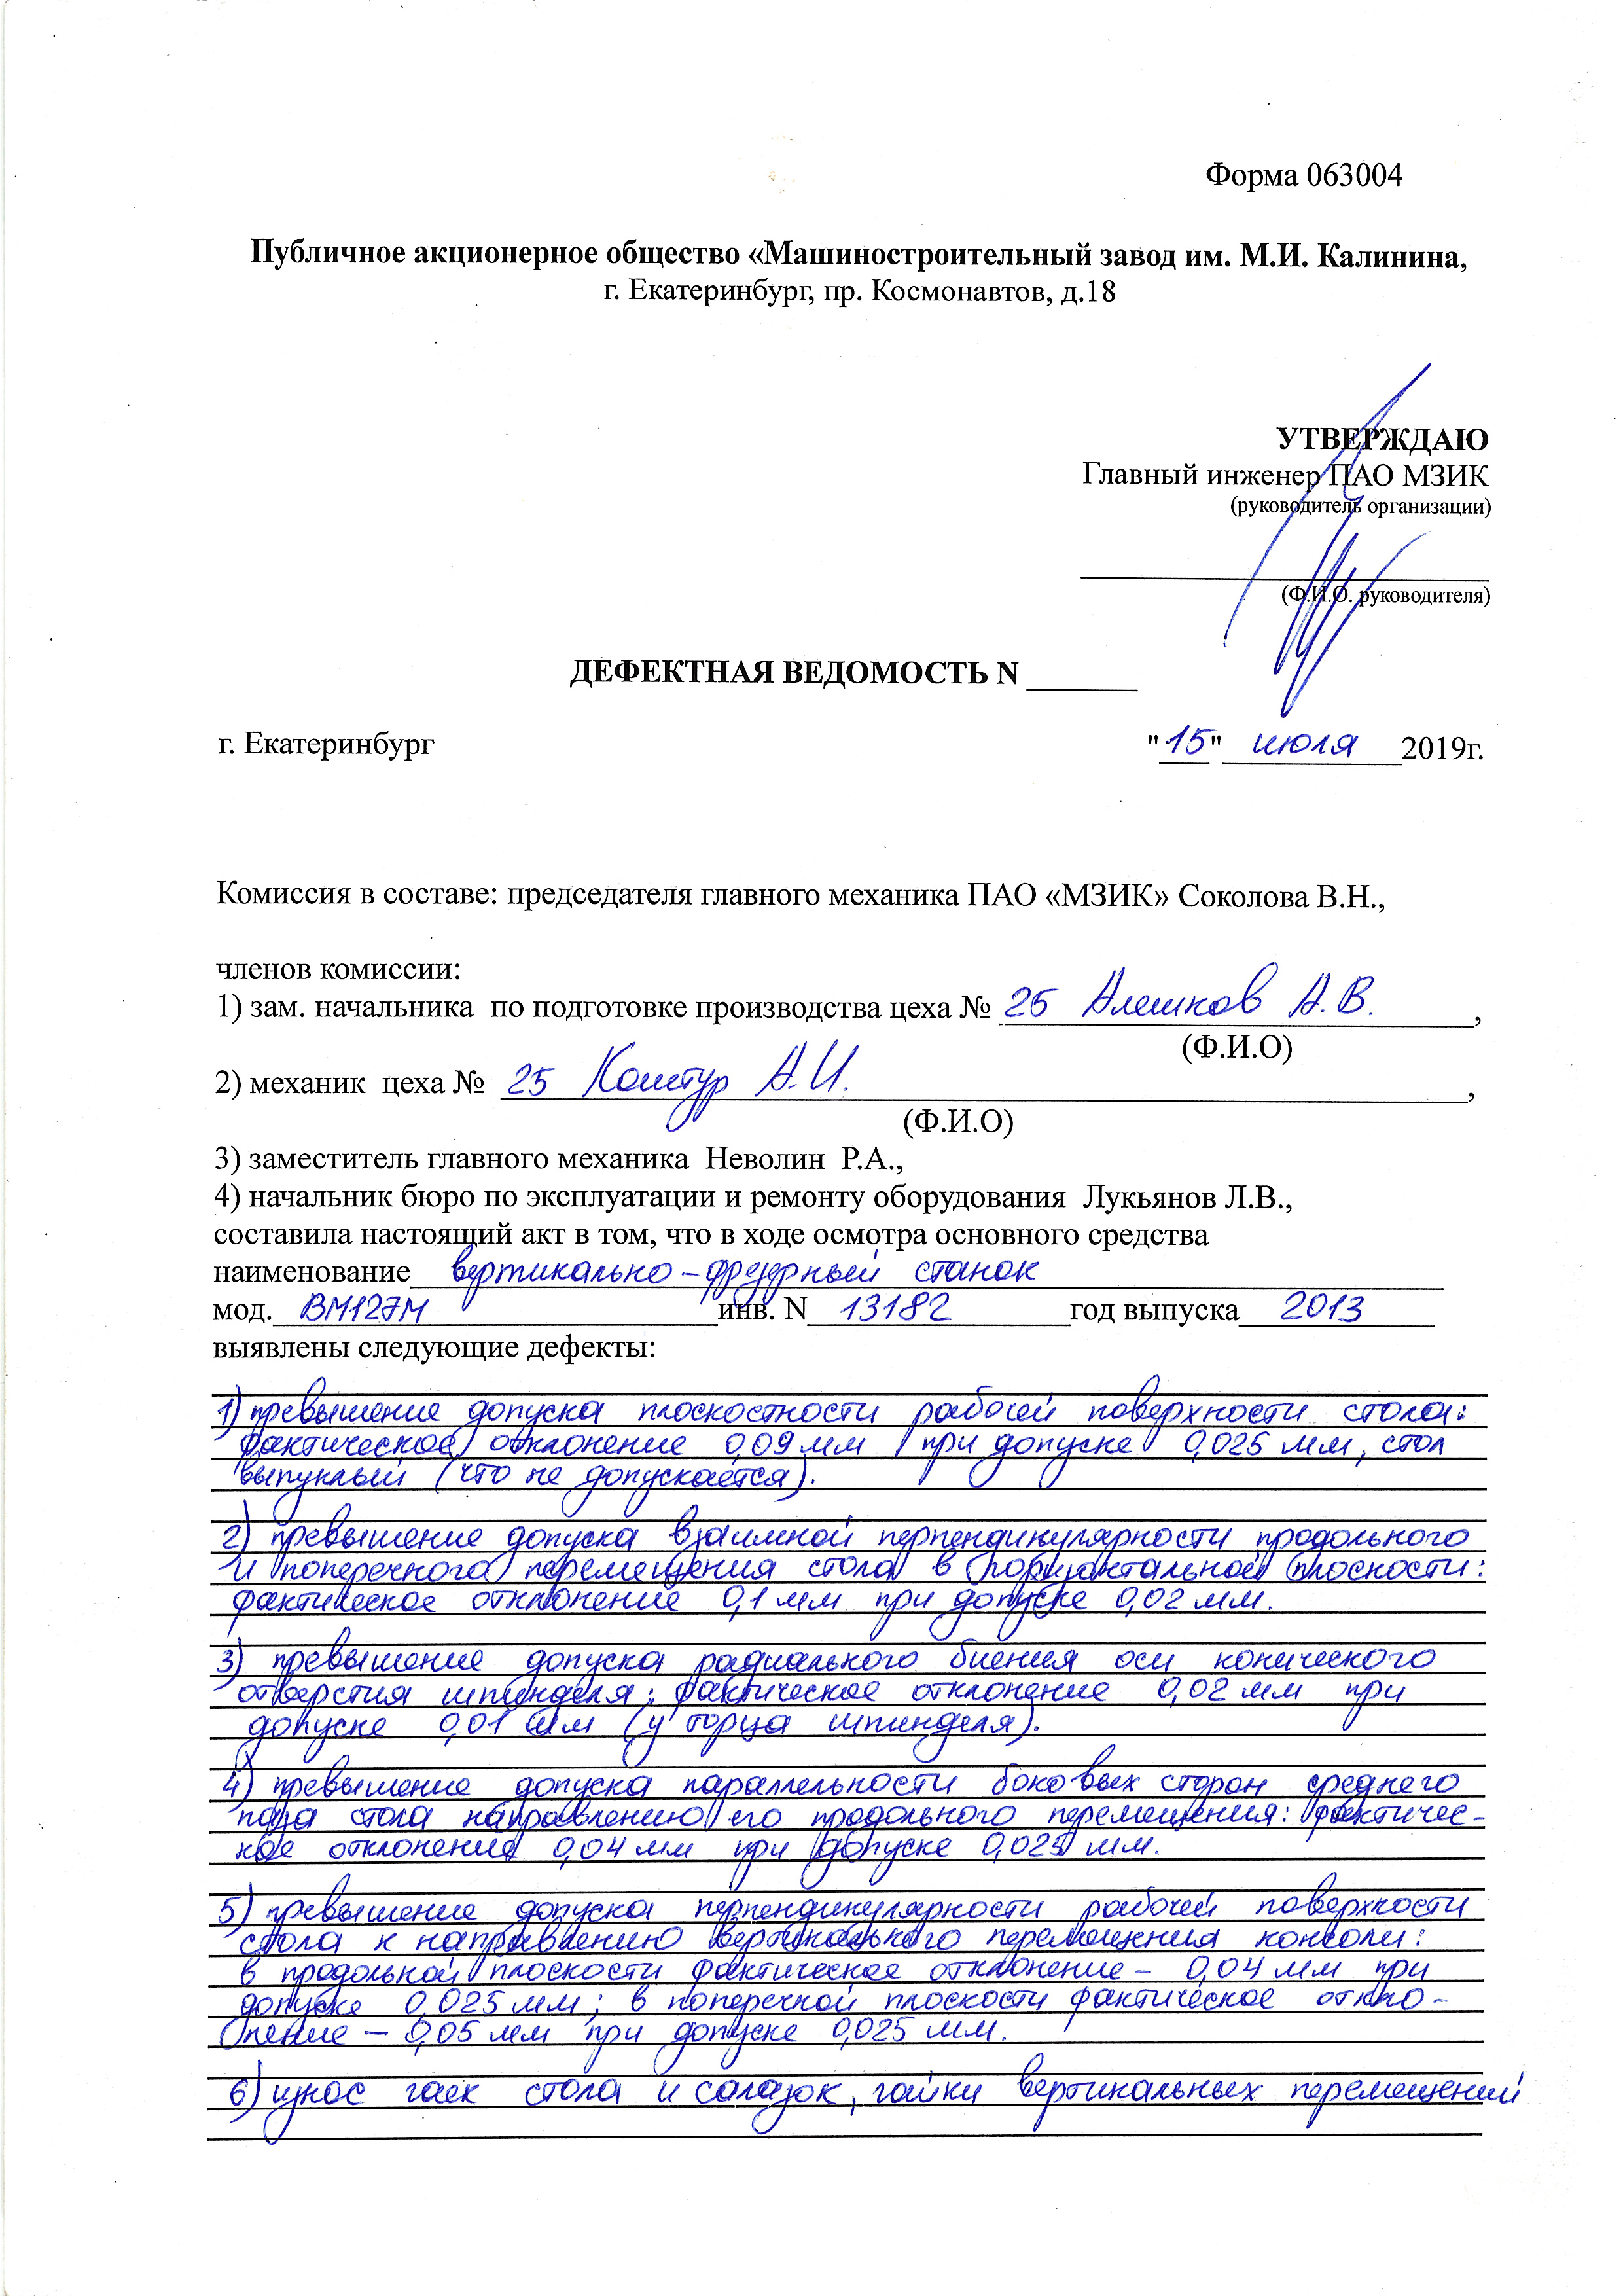 Форма 063004
Публичное акционерное общество «Машиностроительный завод им. М.И. Калинина,
г. Екатеринбург, пр. Космонавтов, д.18
УТВЕРЖДАЮ
Главный инженер ПАО МЗИК
(руководитель организации)
(Ф.И.О. руководителя)
ДЕФЕКТНАЯ ВЕДОМОСТЬ N ______
г. Екатеринбург "15" июля 2019г.
Комиссия в составе: председателя главного механика ПАО «МЗИК» Соколова В.Н.,
членов комиссии:
1) зам. начальника по подготовке производства цеха № 25 Алешков А.В.,
(Ф.И.О)
2) механик цеха № 25 Коштур А.И.,
(Ф.И.О)
3) заместитель главного механика Неволин Р.А.,
4) начальник бюро по эксплуатации и ремонту оборудования Лукьянов Л.В.,
составила настоящий акт в том, что в ходе осмотра основного средства
наименование вертикально-фрезерный станок
мод. ВМ127М инв. N 13182 год выпуска 2013
выявлены следующие дефекты:
1) превышение допуска плоскостности рабочей поверхности стола:
фактическое отклонение 0,09 мм при допуске 0,025 мм, стол
выпуклый (что не допускается).
2) превышение допуска взаимной перпендикулярности продольного
и поперечного перемещения стола в горизонтальной плоскости:
фактическое отклонение 0,1 мм при допуске 0,02 мм.
3) превышение допуска радиального биения оси конического
отверстия шпинделя: фактическое отклонение 0,02 мм при
допуске 0,01 мм (у торца шпинделя).
4) превышение допуска параллельности боковых сторон среднего
паза стола направлению его продольного перемещения: фактичес-
кое отклонение 0,04 мм при допуске 0,025 мм.
5) превышение допуска перпендикулярности рабочей поверхности
стола к направлению вертикального перемещения консоли:
в продольной плоскости фактическое отклонение - 0,04 мм при
допуске 0,025 мм; в поперечной плоскости фактическое откло-
нение - 0,05 мм при допуске 0,025 мм.
6) износ гаек стола и салазок, гайки вертикальных перемещений